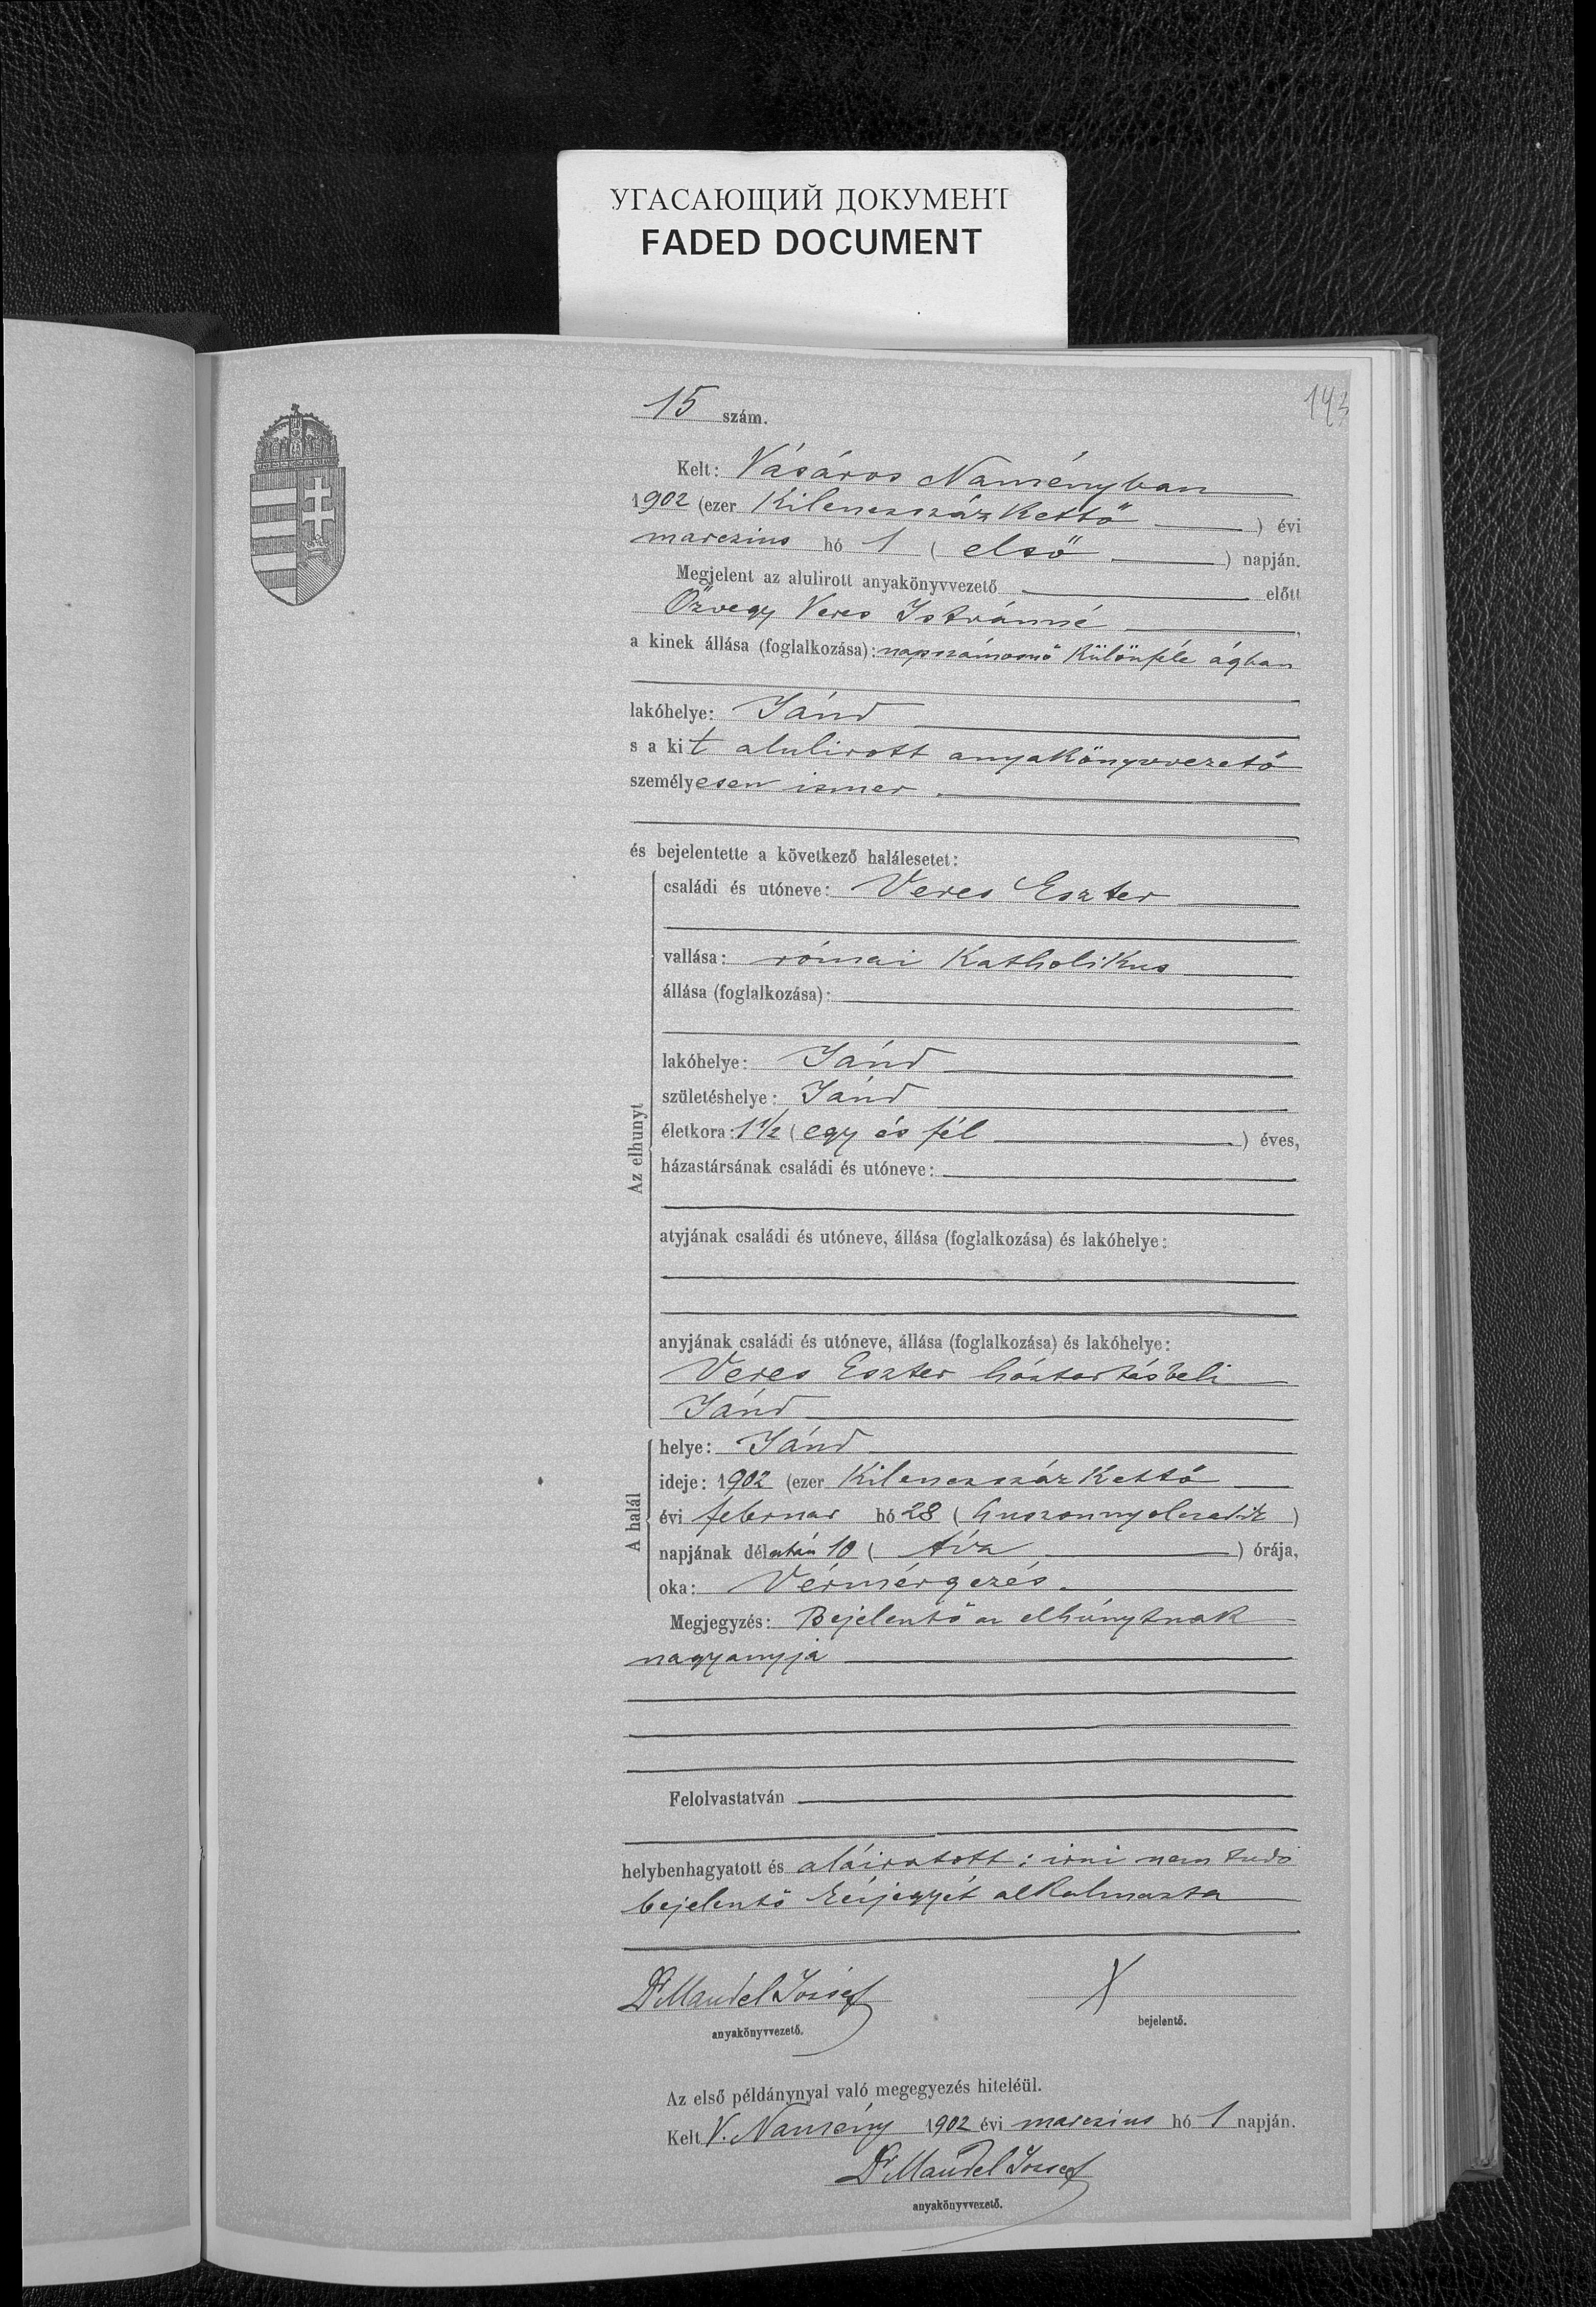 УГАСАЮЩИЙ ДОКУМЕНТ
FADED DOCUMENT
143
15 szám.
Kelt: Vásáros Naményban
1902 (ezer Kilenczszáz Kettő ) évi
marczius hó 1 ( első ) napján.
Megjelent az alulirott anyakönyvvezető előtt
Özvegy Veres Istvánné
a kinek állása (foglalkozása): napszámosnő Különféle ágban
lakóhelye: Jánd
s a kit alulirott anyakönyvvezető
személyesen ismer.
és bejelentette a következő halálesetet:
családi és utóneve: Veres Eszter
vallása: római Katholikus
állása (foglalkozása):
lakóhelye: Jánd
születéshelye: Jánd
életkora: 1 1/2 ( egy és fél ) éves,
házastársának családi és utóneve:
atyjának családi és utóneve, állása (foglalkozása) és lakóhelye:
anyjának családi és utóneve, állása (foglalkozása) és lakóhelye:
Veres Eszter háztartásbeli
Jánd
Az elhunyt
helye: Jánd
ideje: 1902 (ezer Kilenczszáz Kettő
évi februar hó 28 ( huszonnyolczadik )
napjának délután 10 ( tíz ) órája,
oka: Vérmérgezés.
A halál
Megjegyzés: Bejelentő az elhúnytnak
nagyanyja
Felolvastatván
helybenhagyatott és aláiratott; irni nem tudó
bejelentő kézjegyét alkalmazta
Dr Mandel József X
anyakönyvvezető. bejelentő.
Az első példánynyal való megegyezés hiteléül.
Kelt V. Namény 1902 évi marczius hó 1 napján.
Dr Mandel József
anyakönyvvezető.